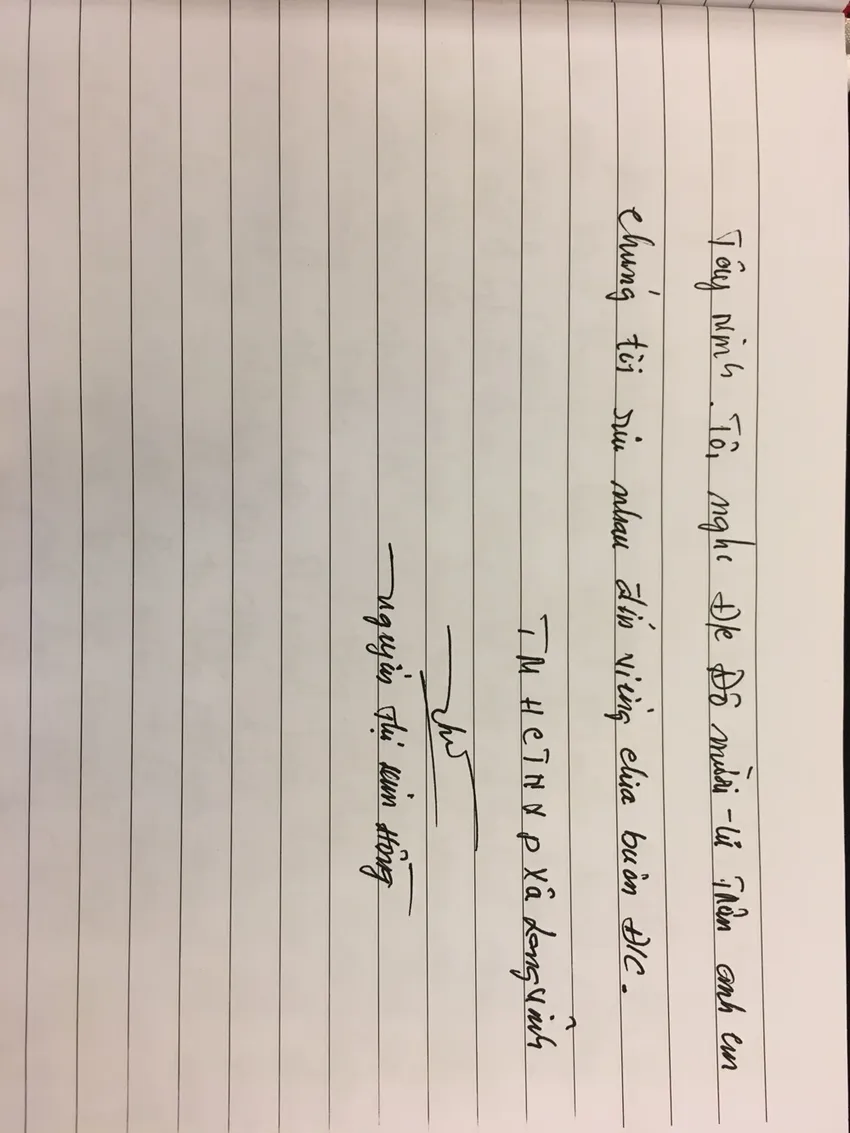 Tây Ninh. Tôi nghe Đ/c Đỗ mười - từ Trần anh em
chúng tôi rủ nhau đến viếng chia buồn Đ/C.
TM HCTNXP Xã Long Vĩnh
Nguyễn Thị Xuân Hồng